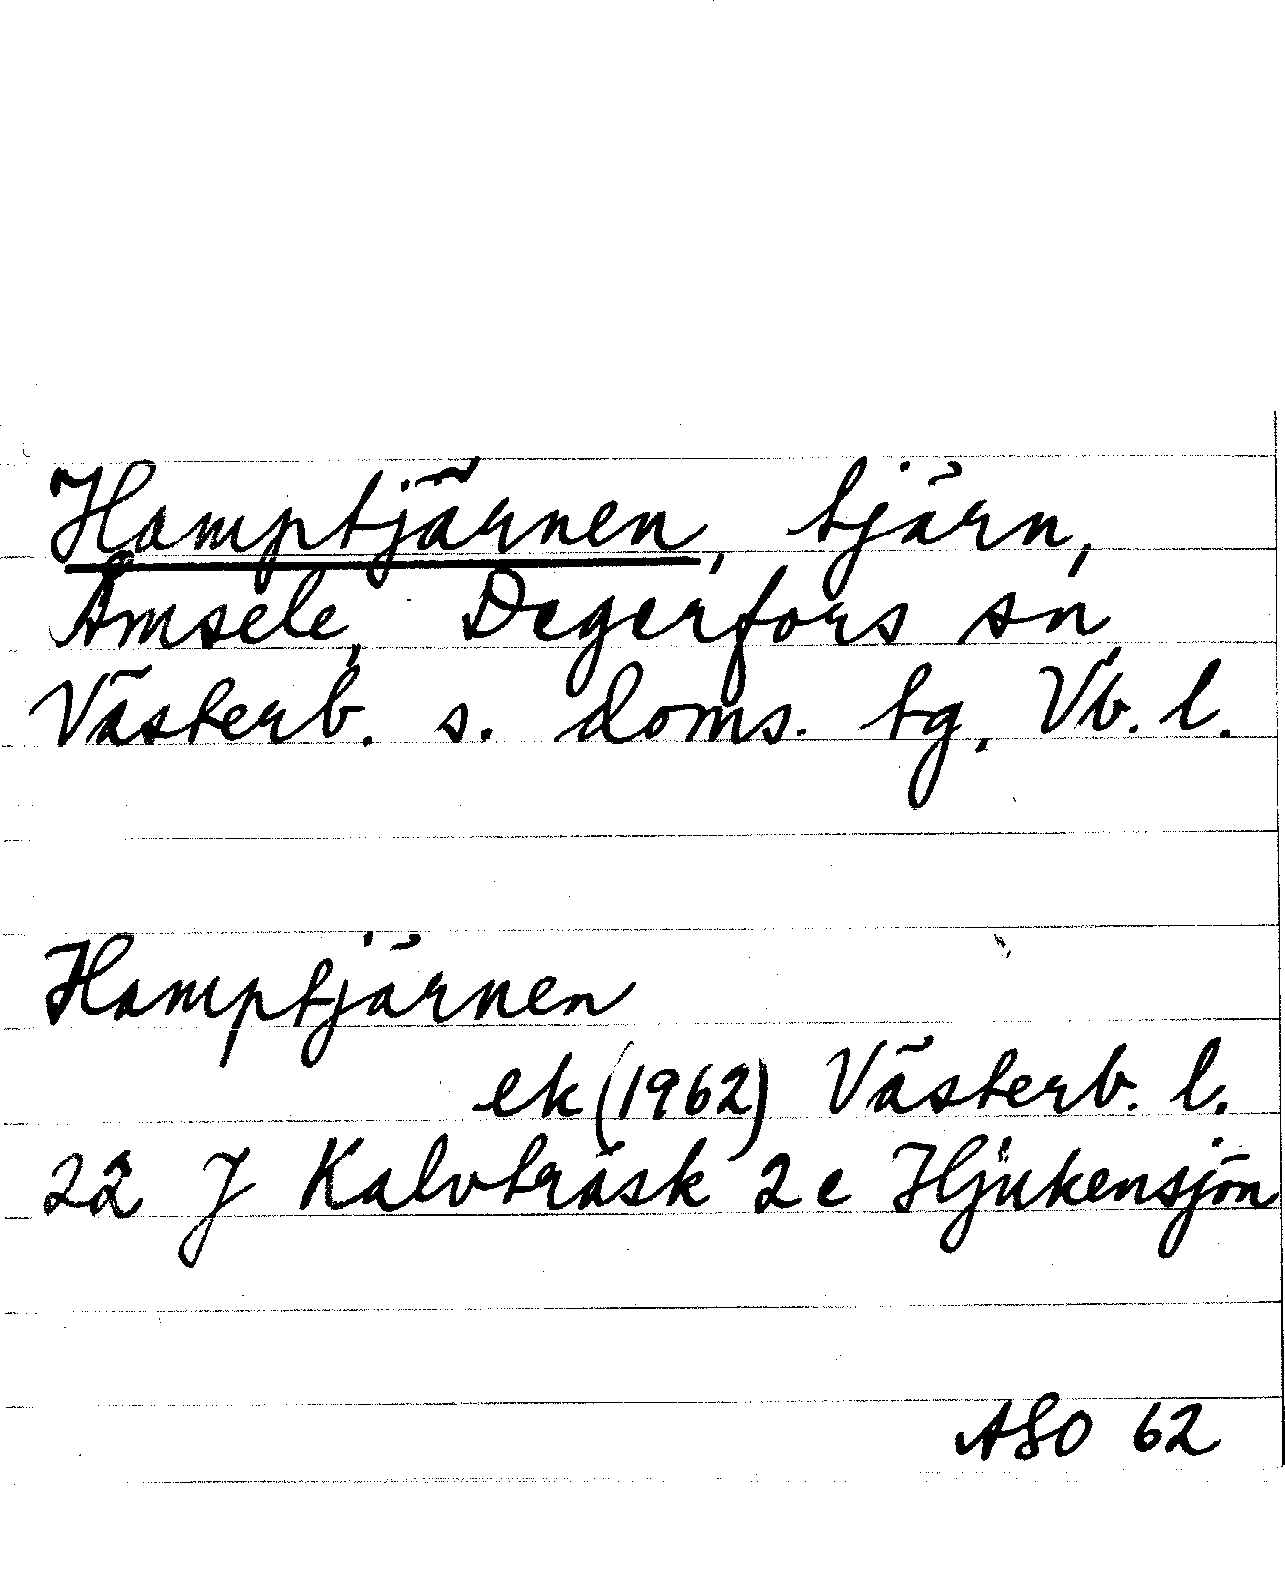 Hamptjärnen, tjärn,
Åmsele, Degerfors sn,
Västerb. s. doms. tg, Vb. l.
Hamptjärnen
ek (1962) Västerb. l.
22 J Kalvträsk 2 e Hjukensjön
ASO 62